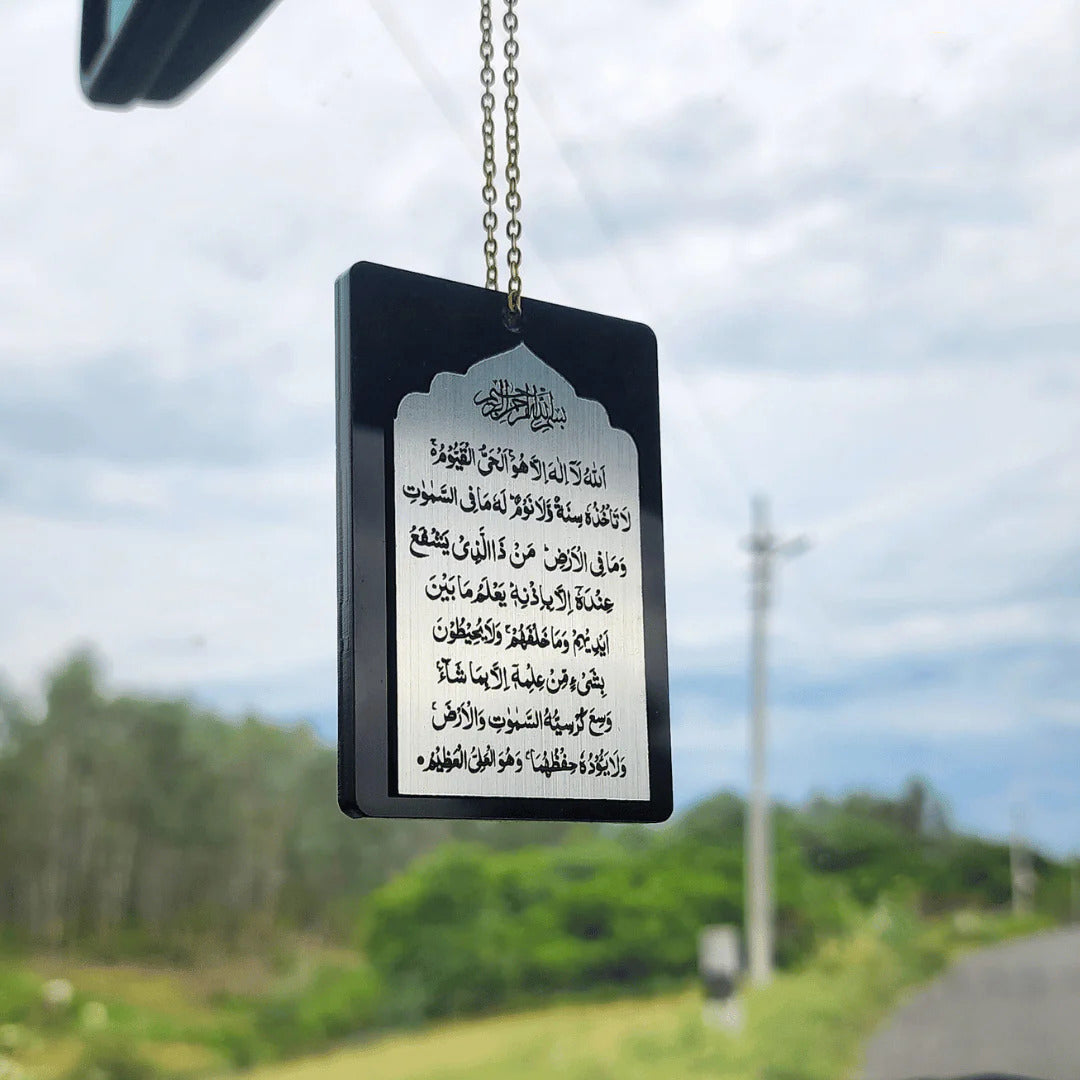 بسم الله الرحمن الرحيم
اَللّٰهُ لَآ اِلٰهَ اِلَّا هُوَ ۚ اَلْحَیُّ الْقَیُّوْمُ ۚ
لَا تَاْخُذُهٗ سِنَةٌ وَّلَا نَوْمٌ ؕ لَهٗ مَا فِی السَّمٰوٰتِ
وَمَا فِی الْاَرْضِ ؕ مَنْ ذَا الَّذِیْ یَشْفَعُ
عِنْدَهٗۤ اِلَّا بِاِذْنِهٖ ؕ یَعْلَمُ مَا بَیْنَ
اَیْدِیْهِمْ وَمَا خَلْفَهُمْ ۚ وَلَا یُحِیْطُوْنَ
بِشَیْءٍ مِّنْ عِلْمِهٖۤ اِلَّا بِمَا شَآءَ ۚ
وَسِعَ كُرْسِیُّهُ السَّمٰوٰتِ وَالْاَرْضَ ۚ
وَلَا یَـُٔوْدُهٗ حِفْظُهُمَا ۚ وَهُوَ الْعَلِیُّ الْعَظِیْمُ ۰